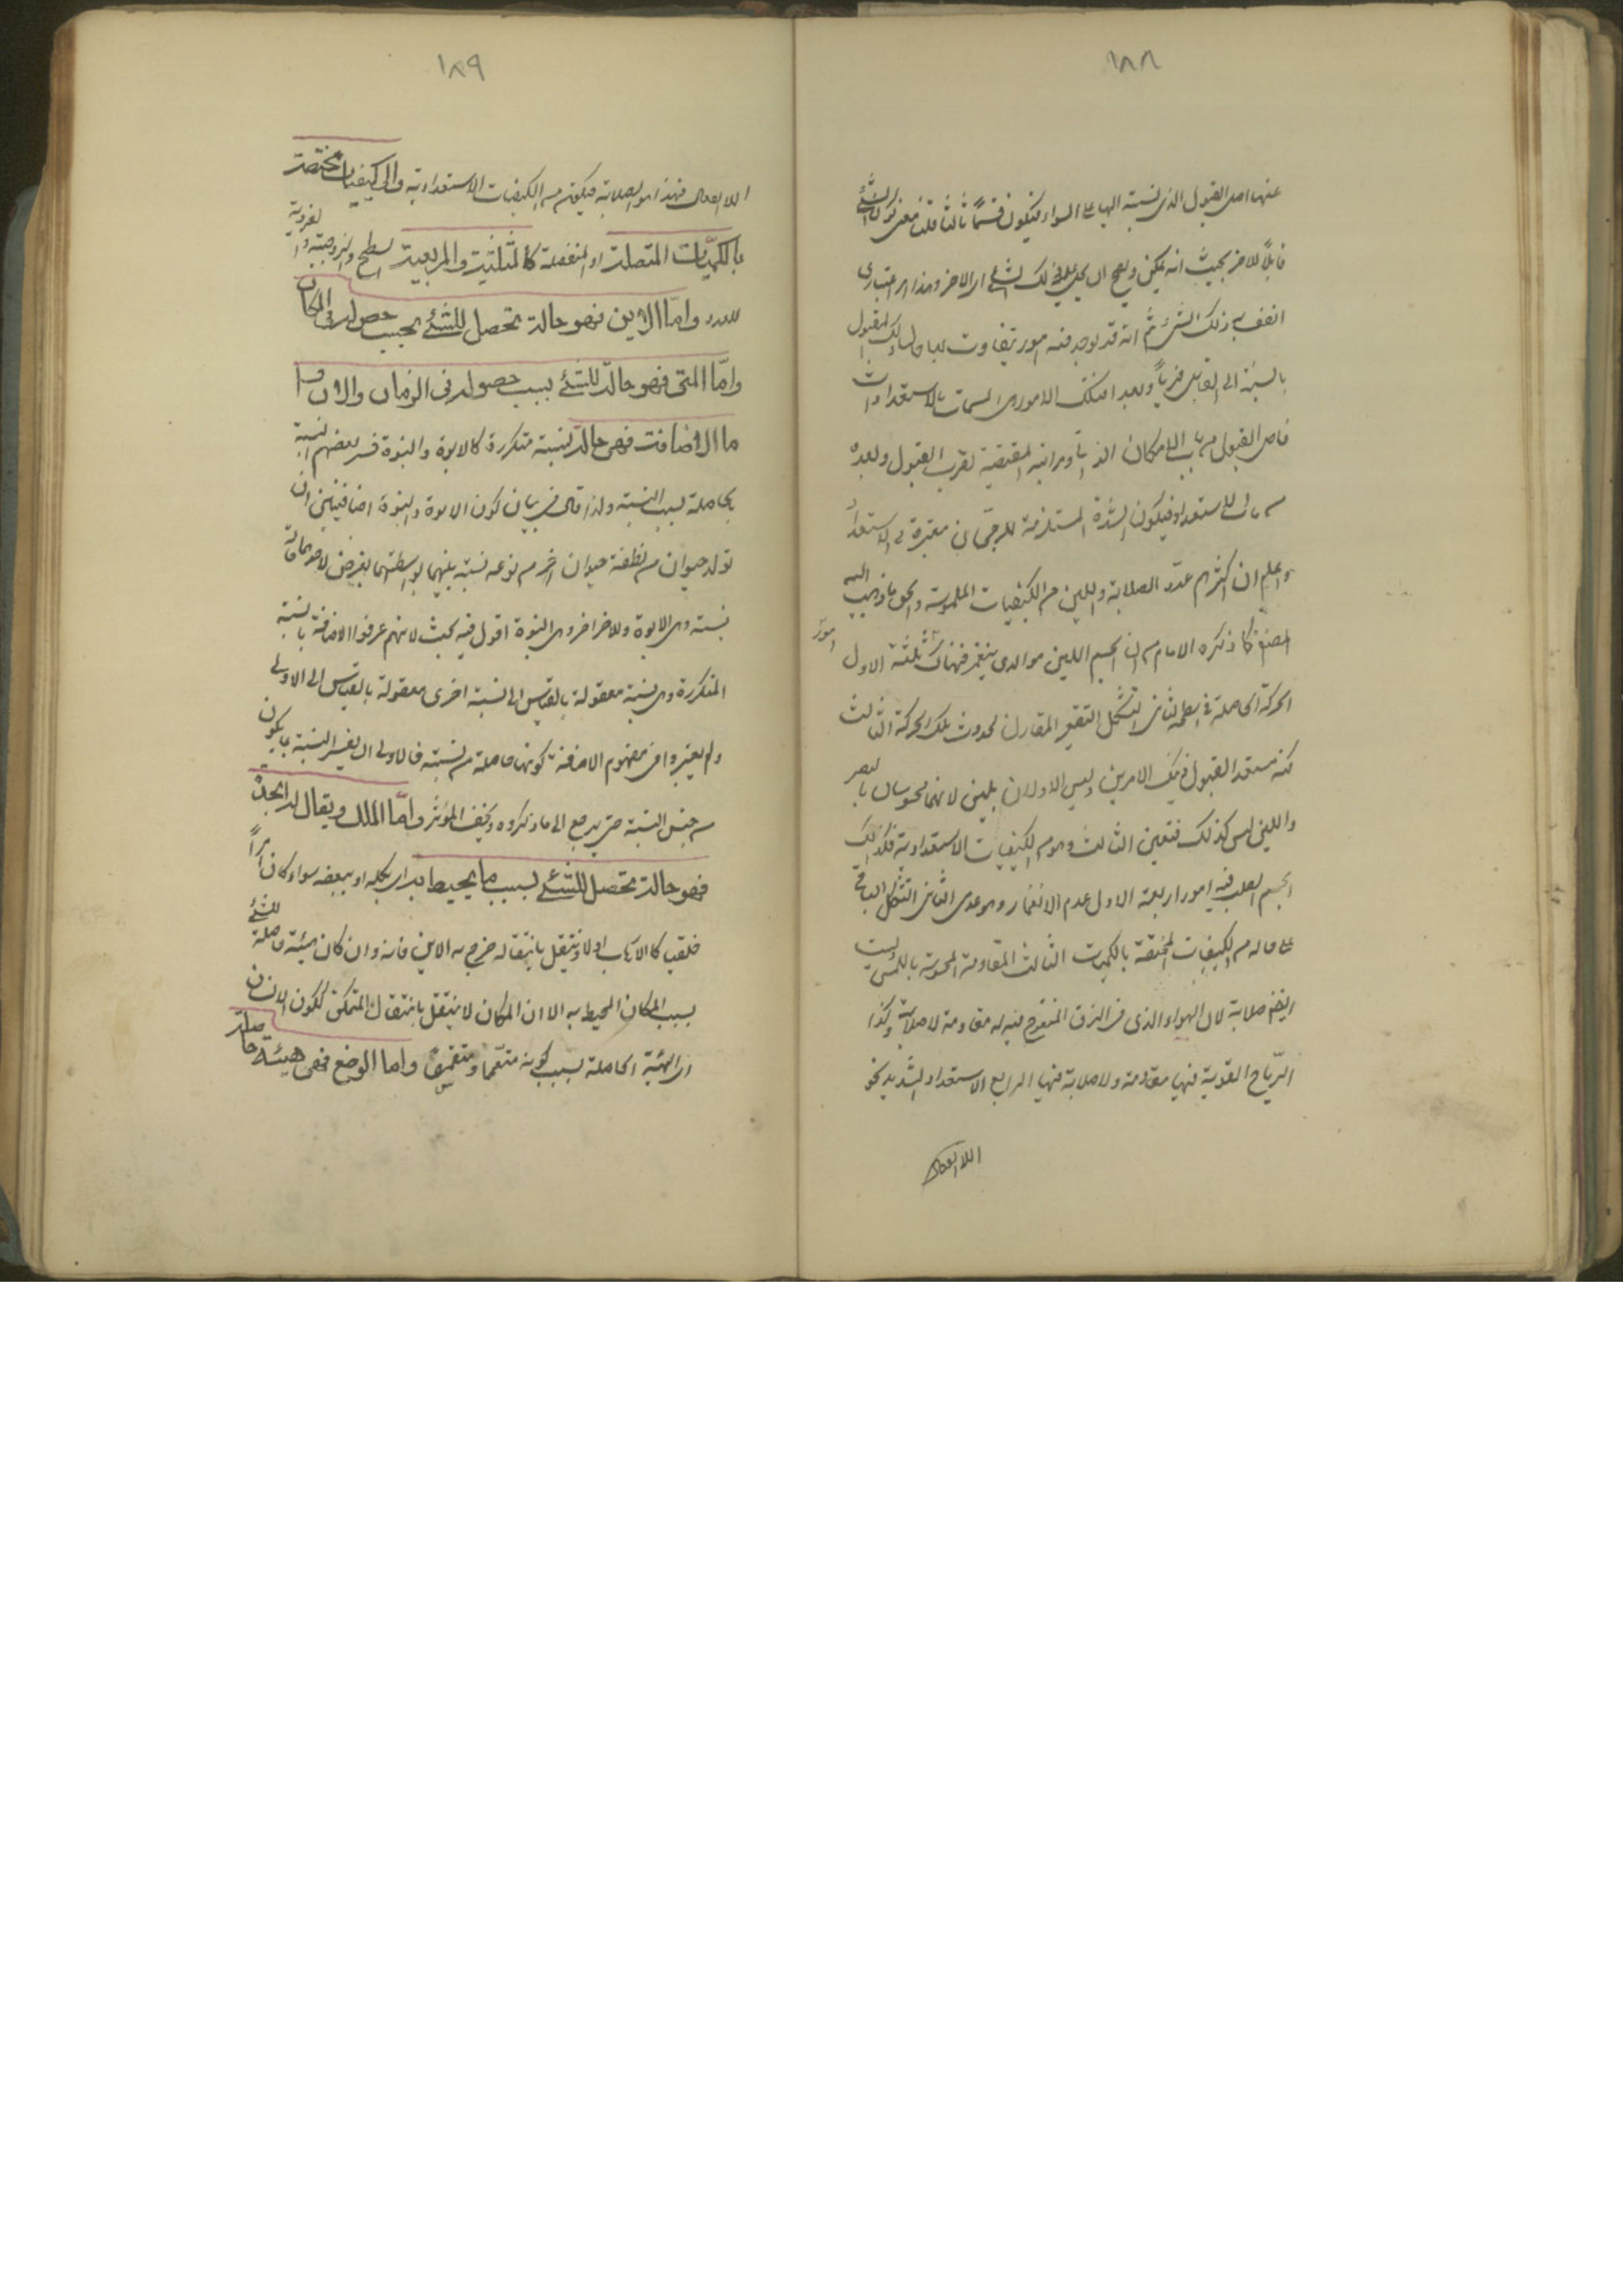 ١٨٨
عنها اصل القبول الذى نسبته اليها على السواء فيكون قسمًا ثالثا قلنا معنى كون الشئ
قابلاً للاخر بحيث انه يمكن ويصح ان يحل فى ذلك الشئ اى الاخر وهذا امر اعتبارى
اتصف به ذلك الشئ ثم انه قد يوجد فيه امور تتفاوت بها حال ذلك المقبول
بالنسبة الى القابل قرباً وبعدا فتلك الامور هى المسمات بالاستعدادات
فاصل القبول من باب الامكان الذاتى ومراتبه المقتضية لقرب القبول وبعده
من باب الاستعداد فيكون الشدة المستلزمة للرجحان معتبرة فى الاستعداد
واعلم ان اكثرهم عدّد الصلابة واللين من الكيفيات الملموسة والحق ما ذهب اليه
المصنف كما ذكره الامام من ان الجسم اللين هو الذى ينغمز فهناك امور ثلثة الاول
الحركة الحاصلة فى سطحه الثانى التشكل التقعير المقارن لحدوث تلك الحركة الثالث
كونه مستعد القبول ذينك الامرين وليس الاولان بلين لانهما محسوسان بالبصر
واللين ليس كذلك فتعين الثالث وهو من الكيفيات الاستعدادية فكذلك
الجسم الصلب فيه امور اربعة الاول عدم الانغماز وهو عدمى الثانى التشكل الباقى
على حاله من الكيفيات المختصة بالكميات الثالث المقاومة المحسوسة باللمس وليست
ايضا صلابة لان الهواء الذى فى الزق المنفوخ فيه له مقاومة لا صلابة وكذا
الرياح القوية فيها مقاومة ولا صلابة فيها الرابع الاستعداد الشديد نحو
اللا انفعال
١٨٩
اللا انفعال فهذا هو الصلابة فيكون من الكيفيات الاستعدادية والى كيفيات مختصة
بالكميّات المتصلة او المنفصلة كالمثلثية والمربعية لسطح والزوجية والفردية
للعدد وامّا الاين فهو حالة تحصل للشئ بحسب حصوله فى المكان
وامّا المتى فهو حالة للشئ بسبب حصوله فى الزمان والان وا
ما الاضافة فهى حالة نسبية متكررة كالابوة والبنوة فسر بعضهم النسبة
بحاصلة بسبب النسبة ولذا قال فى بيان كون الابوة والبنوة اضافيتين ان
تولد حيوان من نطفة حيوان اخر من نوعه نسبة بينهما بواسطتهما يعرض لاحدهما حالة
نسبية وهى الابوة وللاخر اخرى وهى البنوة اقول فيه بحث لانهم عرفوا الاضافة بالنسبة
المتكررة وهى نسبة معقولة بالقياس الى نسبة اخرى معقولة بالقياس الى الاولى
ولم يعتبروا فى مفهوم الاضافة كونها حاصلة من نسبته فالاولى ان يفسر النسبية بما يكون
من جنس النسبة حتى يرجع الى ما ذكروه ويخفف المؤنة وامّا الملك ويقال له الجدة
فهو حالة تحصل للشئ بسبب ما يحيط به اى بكله او ببعضه سواء كان امراً
خلقيا كالاهاب اولا وينتقل بانتقاله خرج به الاين فانه وان كان هيئة حاصلة للشئ
بسبب المكان المحيط به الا ان المكان لا ينتقل بانتقال المتمكن ككون الانسان
اى الهيئة الحاصلة بسبب كونه متعمّما ومتقمّصا واما الوضع فهى هيئة حاصلة